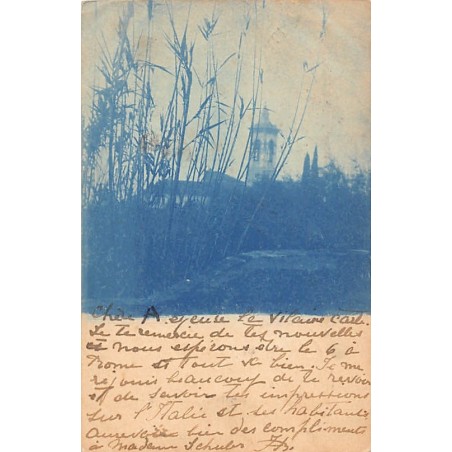 Chère A. excuse la vilaine carte.
Je te remercie de tes nouvelles
et nous espérons être le 6 à
Rome et tout va bien. Je me
réjouis beaucoup de te revoir
et de savoir tes impressions
sur l'Italie et ses habitants
au revoir bien des compliments
à Madame Schuler.